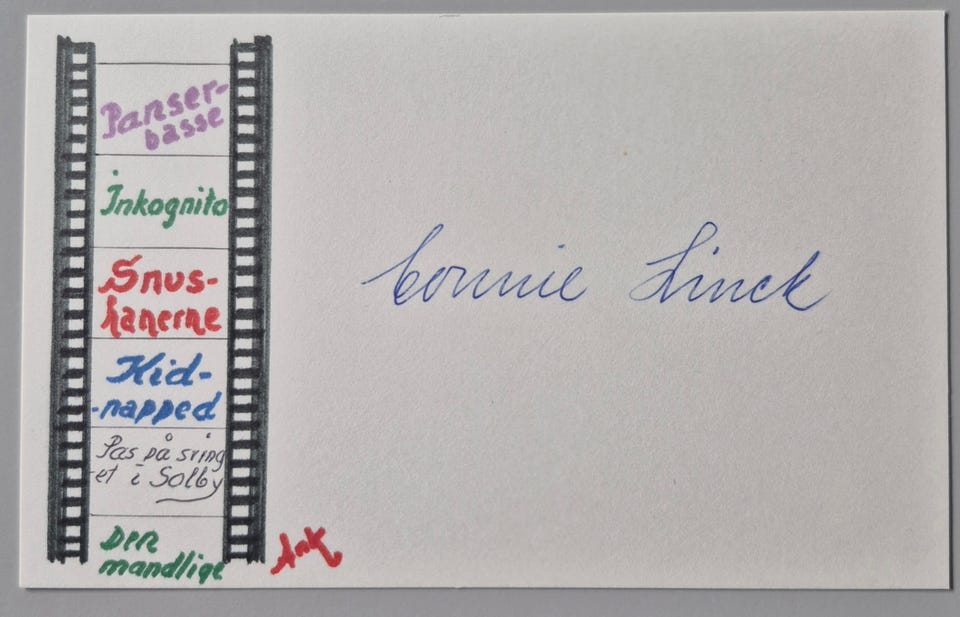 Panser-
basse
Inkognito
Snus-
hanerne
Kid-
-napped
Pas på sving
-et i Solby
Den
mandlige
Connie Linck